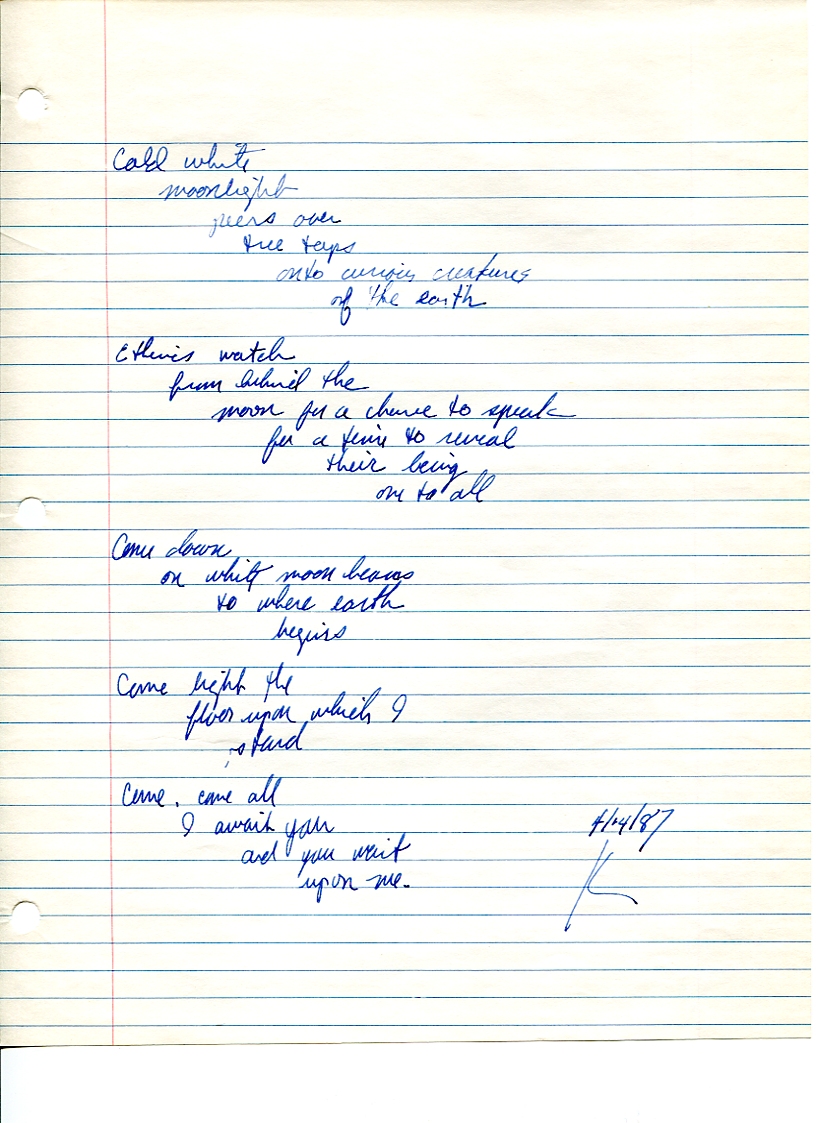 Cold white
moonlight
peers over
tree tops
onto curious creatures
of the earth
watch
from behind the
moon for a chance to speak
for a time to reveal
their being
one to all
Come down
on white moon beams
to where earth
begins
Come light the
floor upon which I
stand
Come, come all
I await you
and you wait
upon me.
K